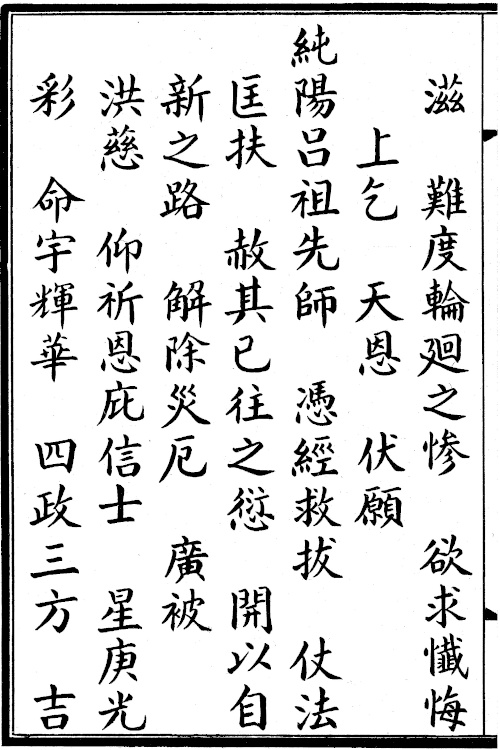 滋　難度輪廻之慘　欲求懺悔
上乞　天恩　伏願
純陽呂祖先師　憑經救拔　仗法
匡扶　赦其已往之愆　開以自
新之路　解除災厄　廣被
洪慈　仰祈恩庇信士　星庚光
彩　命宇輝華　四政三方　吉